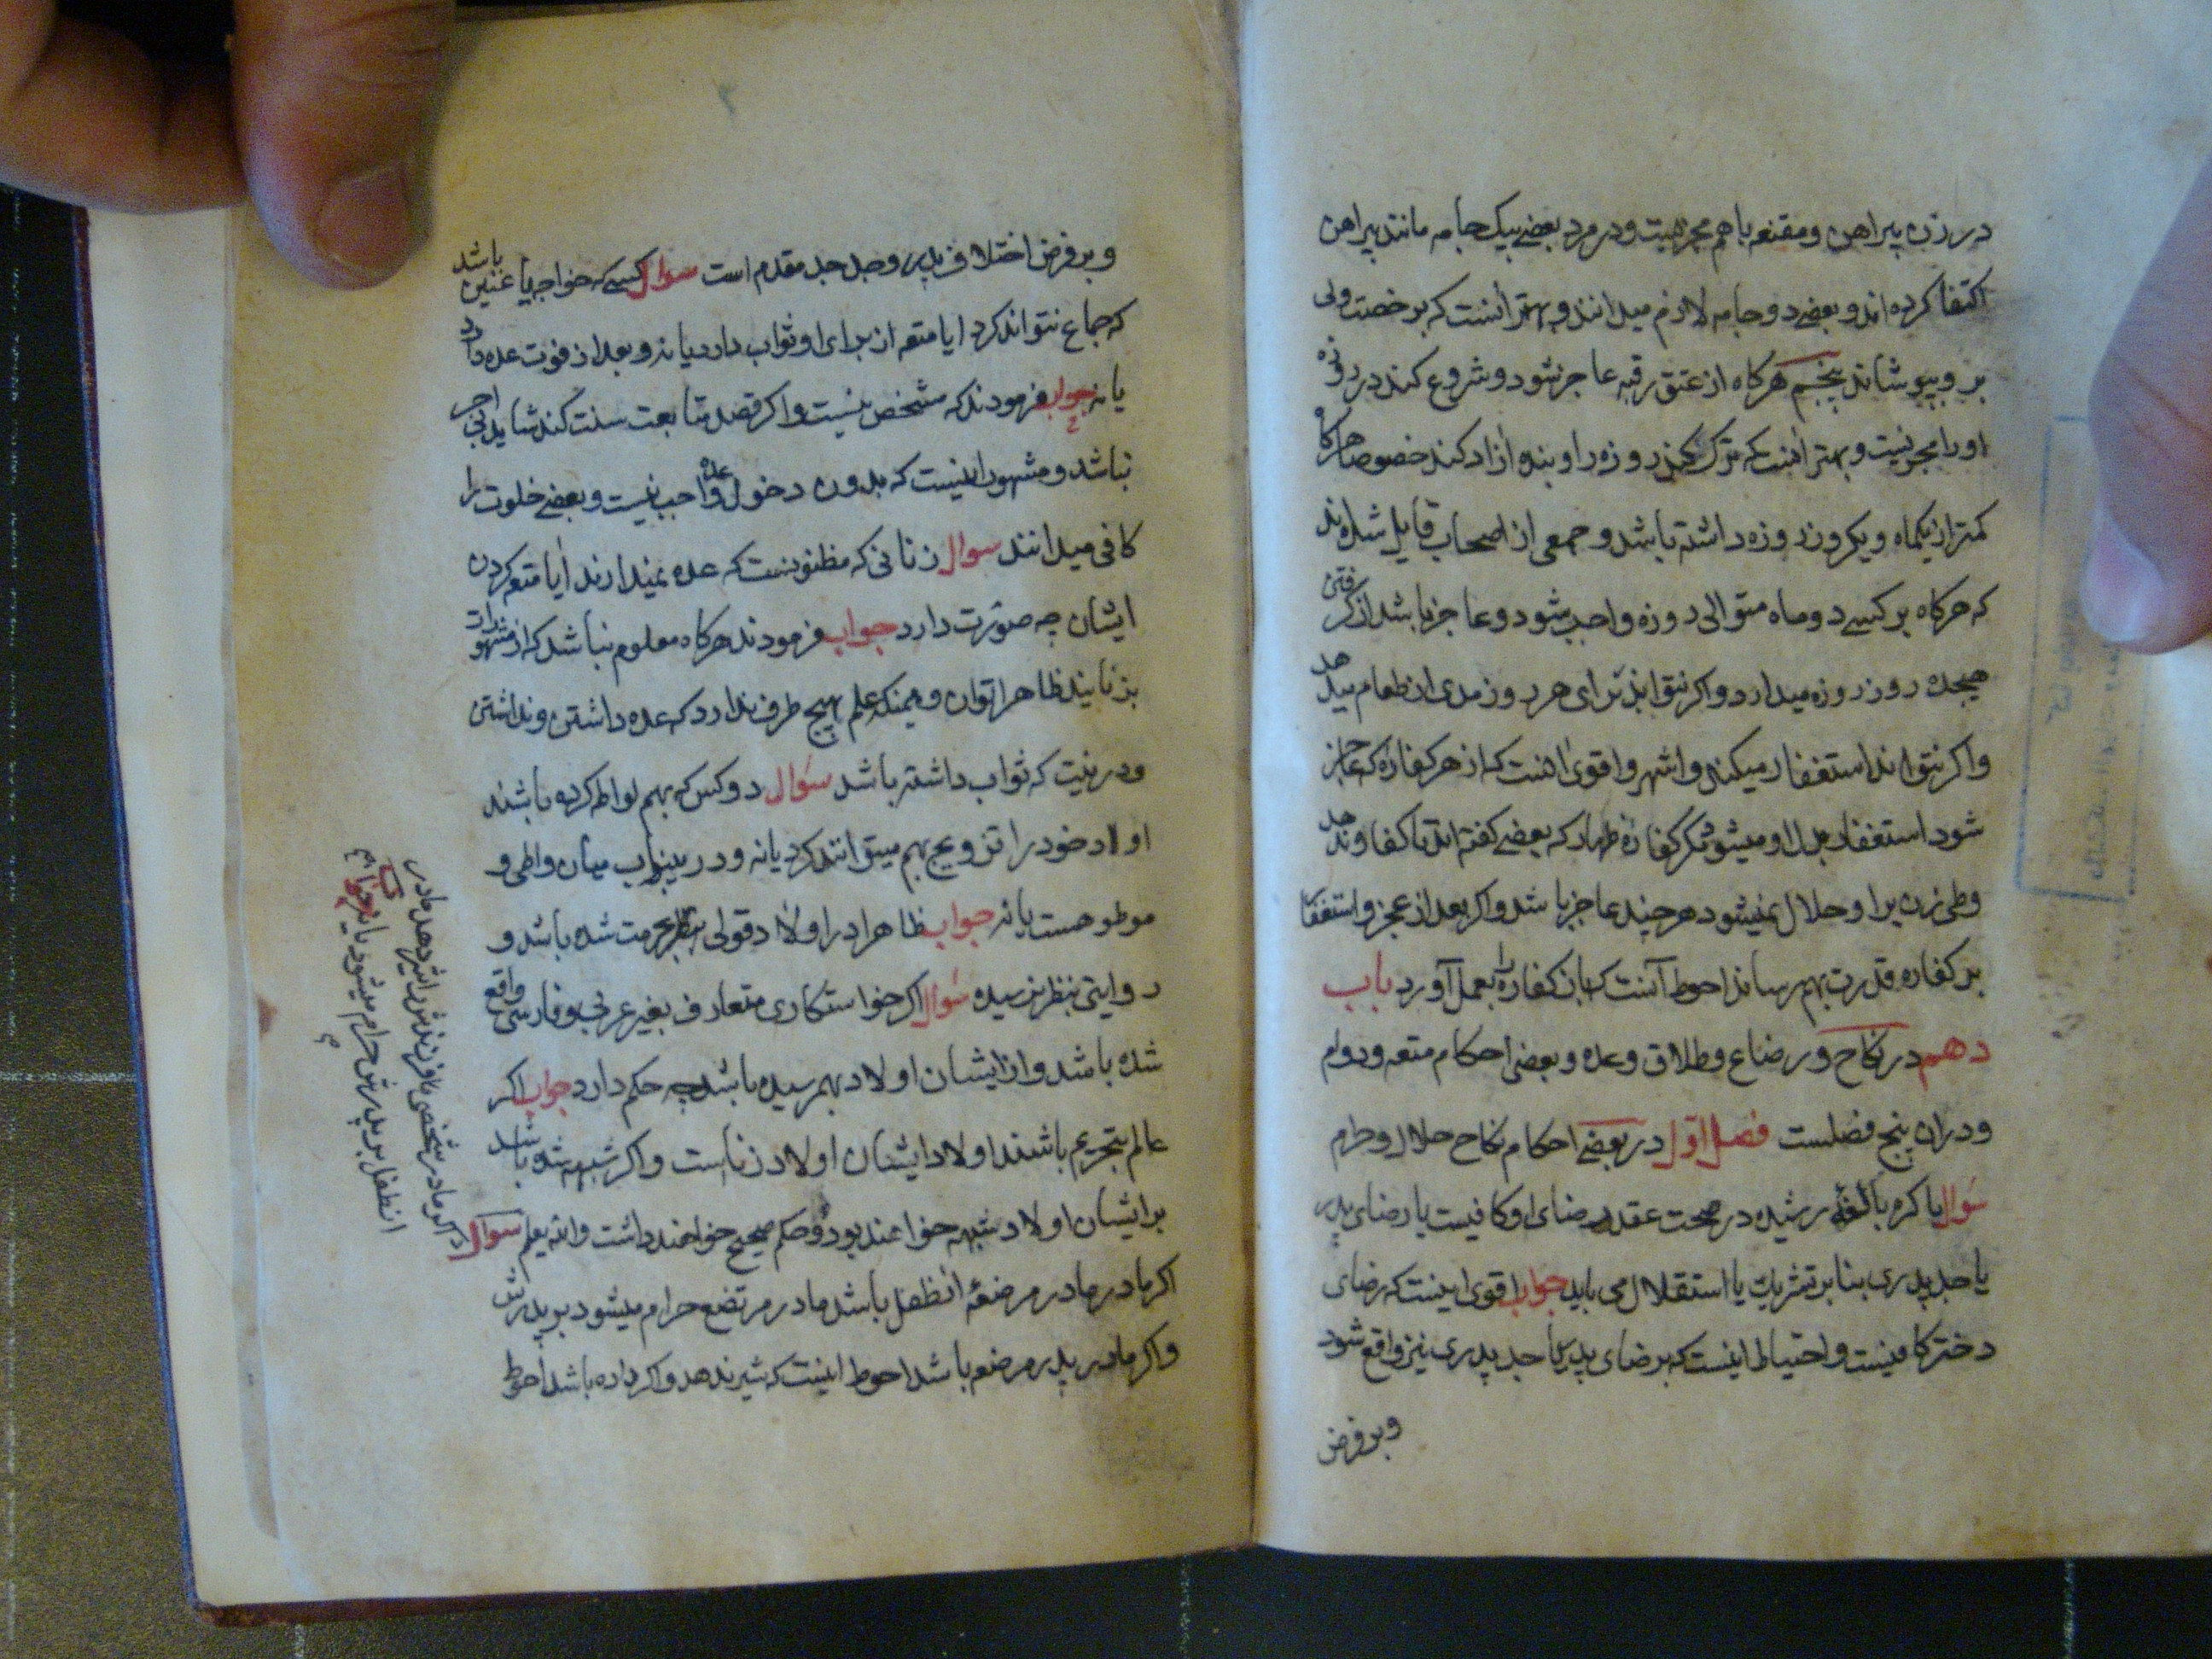 در زن پیراهن و مقنعه با هم مجزیست و در مرد بعضی بیک جامه مانند پیراهن
اکتفا کرده اند و بعضی دو جامه لازم میدانند و بهتر آنست که برخصت ولی
بر و بپوشاند پنجم هرکاه از عتق رقبه عاجز شود و شروع کند در روزه
او را مجزیست و بهتر اینست که ترک کند روزه را و بنده ازاد کند خصوصا هرکاه
کمتر از یکماه و یکروز روزه داشته باشد و جمعی از اصحاب قایل شده اند
که هرکاه بر کسے دو ماه متوالی روزه واجب شود و عاجز باشد از کرفتن
هیجده روز روزه میدارد و اکر نتواند برای هر روز مدی از طعام میدهد
و اکر نتواند استغفار میکند و اشهر و اقوی اینست که از هر کفاره که عاجز
شود استغفار بدل او میشود مکر کفاره ظهار که بعضے کفته اند تا کفاره ندهد
وطی زن بر او حلال نمیشود هر چند عاجز باشد و اکر بعد از عجز و استغفار
بر کفاره قدرت بهم رساند احوط آنست که ان کفاره را بعمل آورد باب
دهم در نکاح و رضاع و طلاق و عده و بعضی احکام متعه و دوام
و دران پنج فصلست فصل اول در بعضے احکام نکاح حلال و حرام
سوال باکره بالغه رشیده در صحت عقد رضای او کافیست یا رضای پدر
یا جد پدری بنا بر تشریک یا استقلال می باید جواب اقوی اینست که رضای
دختر کافیست و احتیاط اینست که برضای پدر یا جد پدری نیز واقع شود
و بر فرض
و بر فرض اختلاف پدر و جد جد مقدم است سوال کسے که خواجه یا عنین باشد
که جماع نتواند کرد ایا متعه از برای او ثواب دارد یا نه و بعد از فوت عده دارد
یا نه جواب فرمودند که مشخص نیست و اکر قصد متابعت سنت کند شاید بی اجر
نباشد و مشهور اینست که بدون دخول عده واجب نیست و بعضے خلوت را
کافی میدانند سوال زنانی که مظنونست که عده نمیدارند ایا متعه کردن
ایشان چه صورت دارد جواب فرمودند هرکاه معلوم نباشد که از مشهورات
بزنایند ظاهرا توان و همینکه علم بهیچ طرف ندارد که عده داشتن و نداشتن
و در نیت که ثواب داشته باشد سوال دو کس که بهم لواطه کرده باشند
اولاد خود را تزویج بهم میتوانند کرد یا نه و درینباب میان واطی و
موطو هست یا نه جواب ظاهرا در اولاد قولی بحرمت شده باشد و
روایتی بنظر نرسیده سوال اکر خواستکاری متعارف بغیر عربی و فارسی واقع
شده باشد و از ایشان اولاد بهمرسیده باشد چه حکم دارد جواب اکر
عالم بتحریم باشند اولاد ایشان اولاد زناست و اکر شبهه شده باشد
بر ایشان اولاد شبهه خواهند بود و حکم صحیح خواهند داشت و الله یعلم سوال
اکر مادر مادر مرضعه انطفل باشد مادر مرتضع حرام میشود بر پدرش
و اکر مادر پدر مرضعه باشد احوط اینست که شیر ندهد و اکر داده باشد احوط
اکر مادر شخصی فرزندش را شیر دهد مادر
انطفل بر پدرش حرام میشود یا نه جواب